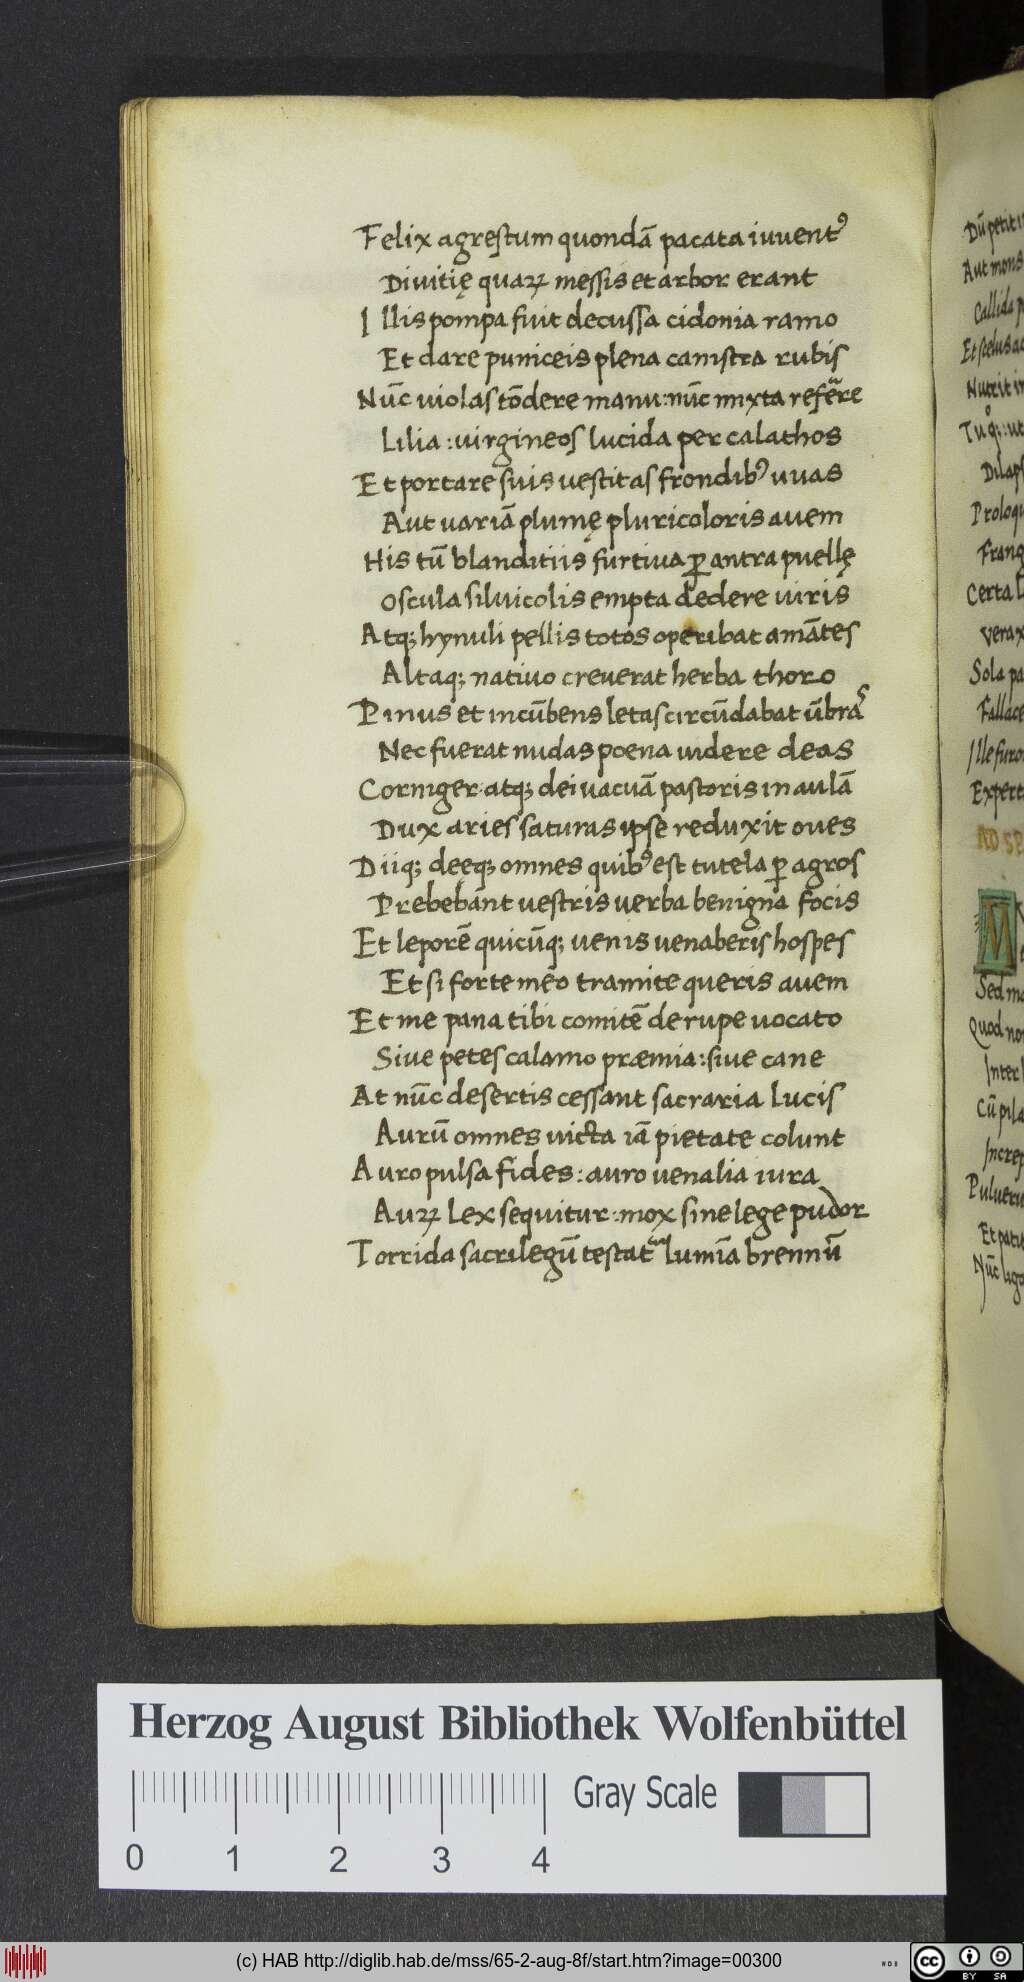 Felix agrestum quondā pacata iuuentꝰ
Diuitię quaꝝ messis et arbor erant
Illis pompa fuit decussa cidonia ramo
Et dare puniceis plena canistra rubis
Nūc uiolas tōdere manu: nūc mixta referre
Lilia: uirgineos lucida per calathos
Et portare suis uestitas frondibꝰ uuas
Aut uariā plumę pluricoloris auem
His tū blanditiis furtiua ꝑ antra puellę
Oscula siluicolis empta dedere uiris
Atqꝫ hynuli pellis totos operibat amātes
Altaqꝫ natiuo creuerat herba thoro
Pinus et incūbens letas circūdabat ūbras
Nec fuerat nudas poena uidere deas
Corniger atqꝫ dei uacuā pastoris in aulā
Dux aries saturas ipse reduxit oues
Diiqꝫ deeqꝫ omnes quibꝰ est tutela ꝑ agros
Prebebant uestris uerba benigna focis
Et leporē quicūqꝫ uenis uenaberis hospes
Et si forte meo tramite queris auem
Et me pana tibi comitē de rupe uocato
Siue petes calamo præmia: siue cane
At nūc desertis cessant sacraria lucis
Aurū omnes uicta iā pietate colunt
Auro pulsa fides: auro uenalia iura
Auꝝ lex sequitur: mox sine lege pudor
Torrida sacrilegū testatᷣ lumīa brennū
Dū petit i
Aut mons
Callida p
Et scelus ac
Nutrit i
Dilaps
Proloqu
Frang
Certa l
Verax
Sola pa
Fallace
Ille furo
Expert
AD SE
M
Sed ma
Quod non
Inter l
Cū pila
Increp
Pulueru
Et patit
Nūc liga
Herzog August Bibliothek Wolfenbüttel
0 1 2 3 4
Gray Scale
(c) HAB http://diglib.hab.de/mss/65-2-aug-8f/start.htm?image=00300
WDB
cc BY SA